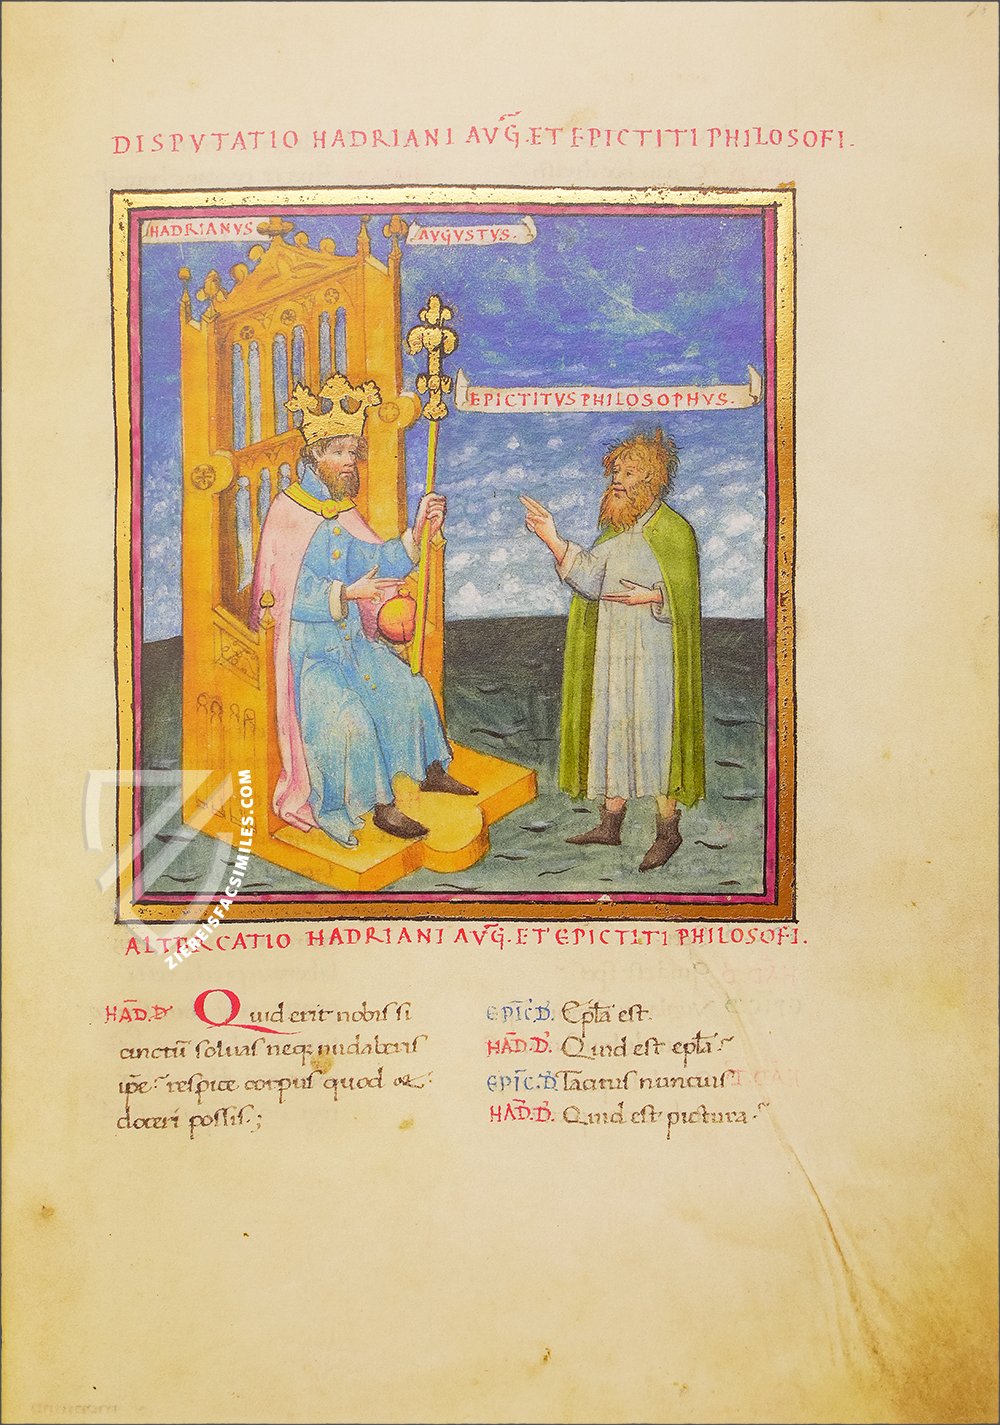 DISPVTATIO HADRIANI AVḠ. ET EPICTITI PHILOSOFI.
HADRIANVS
AVGVSTVS.
EPICTITVS PHILOSOPHVS.
ZIEREISFACSIMILES.COM
ALTERCATIO HADRIANI AVḠ. ET EPICTITI PHILOSOFI.
HAD̄.D̄ Quid erit nobis si
cinctū soluas neq; nudaberis
ip̄e? respice corpus quod &
doceri possis;
EPIC̄.D̄. Epl̄a est.
HAD̄.D̄. Quid est epl̄a?
EPIC̄.D̄ Tacitus nuncius
HAD̄.D̄. Quid est pictura?